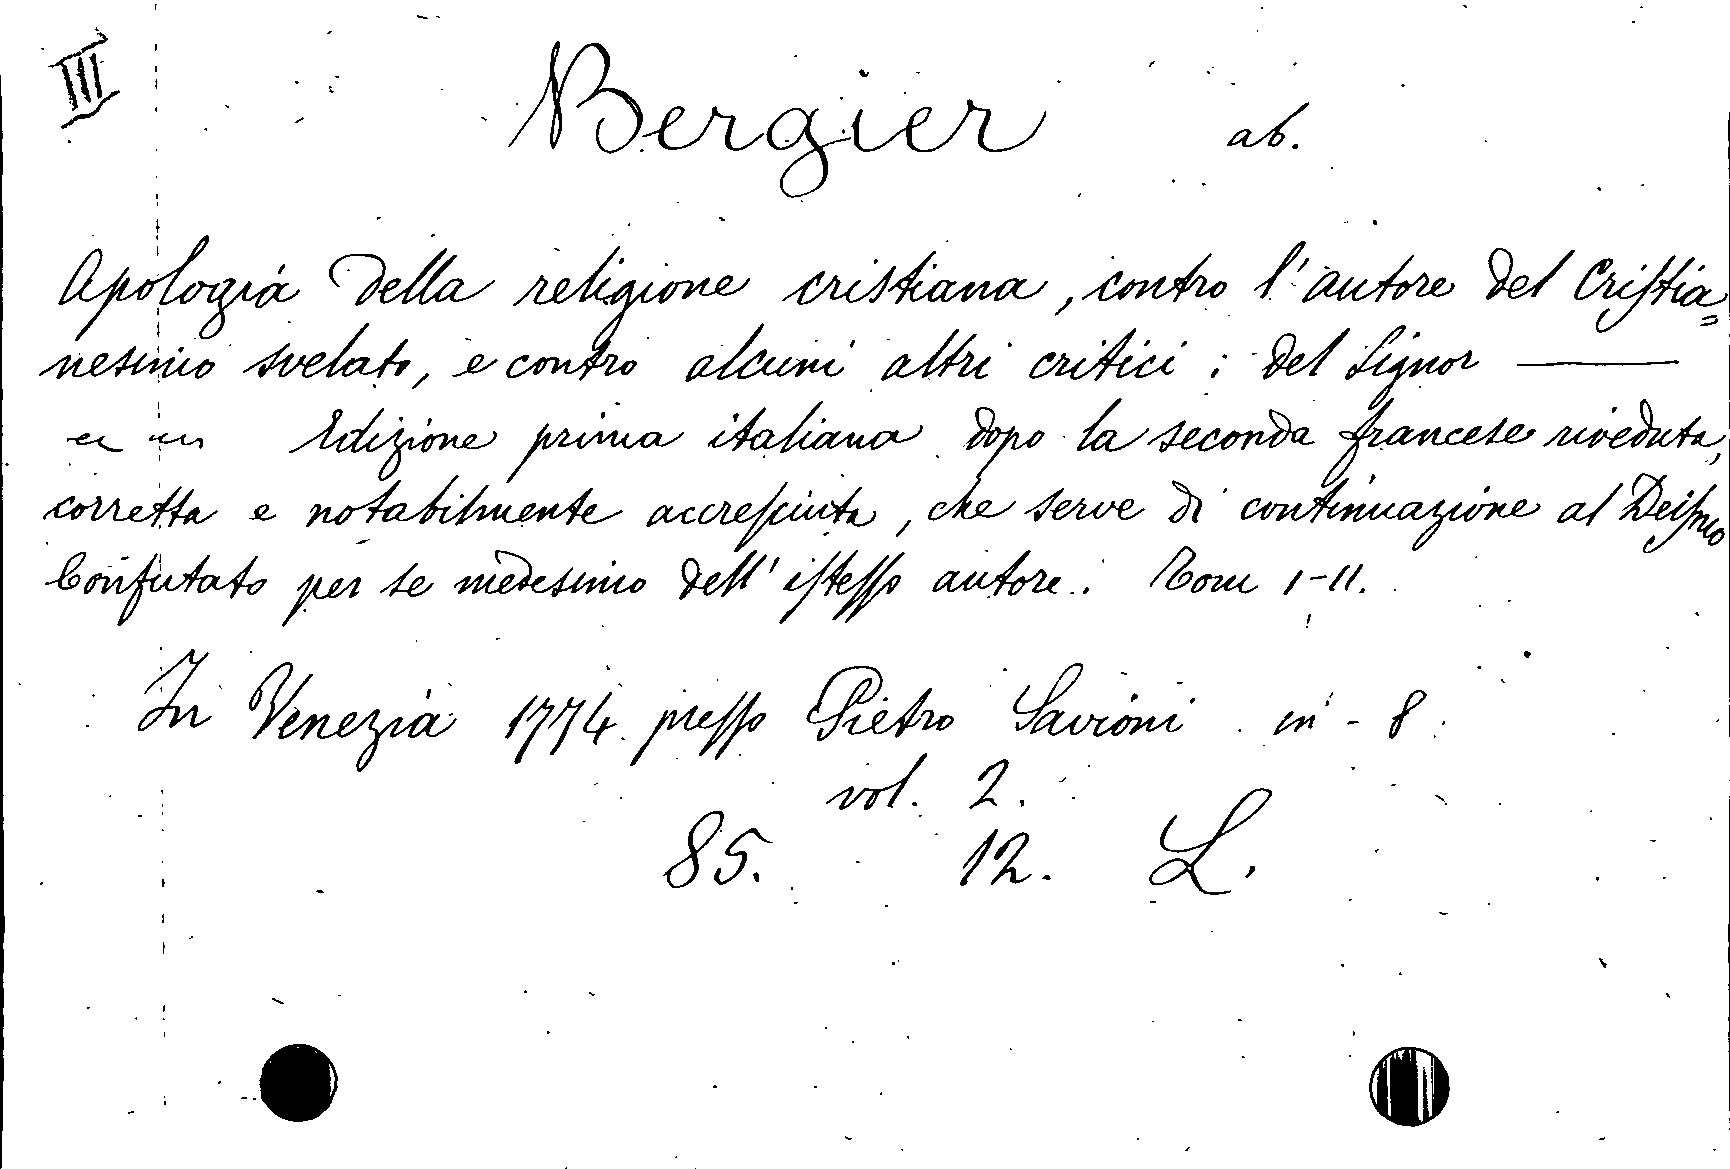 III
Bergier ab.
Apologia della religione cristiana, contro l'autore del Cristia=
nesimo svelato, e contro alcuni altri critici: del Signor ———
Edizione prima italiana dopo la seconda francese riveduta,
corretta e notabilmente accresciuta, che serve di continuazione al Deismo
Confutato per se medesimo dell'istesso autore. Tom I-II.
In Venezia 1774. presso Pietro Savioni in-8.
vol. 2.
85. 12. L.